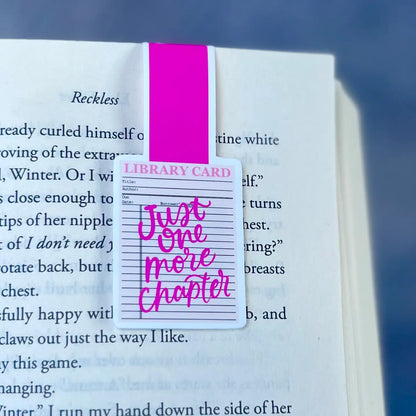 Reckless
ready curled himself o
stine white
roving of the extrav
l, Winter. Or I wi
self."
s close enough to
e turns
tips of her nipple
hest.
t of I don't need y
ering?"
rotate back, but t
breasts
chest.
sfully happy with
b, and
claws out just the way I like.
y this game.
hanging.
inter." I run my hand down the side of her
LIBRARY CARD
Title:
Author:
Due
Date:
Borrower
Just
one
more
chapter